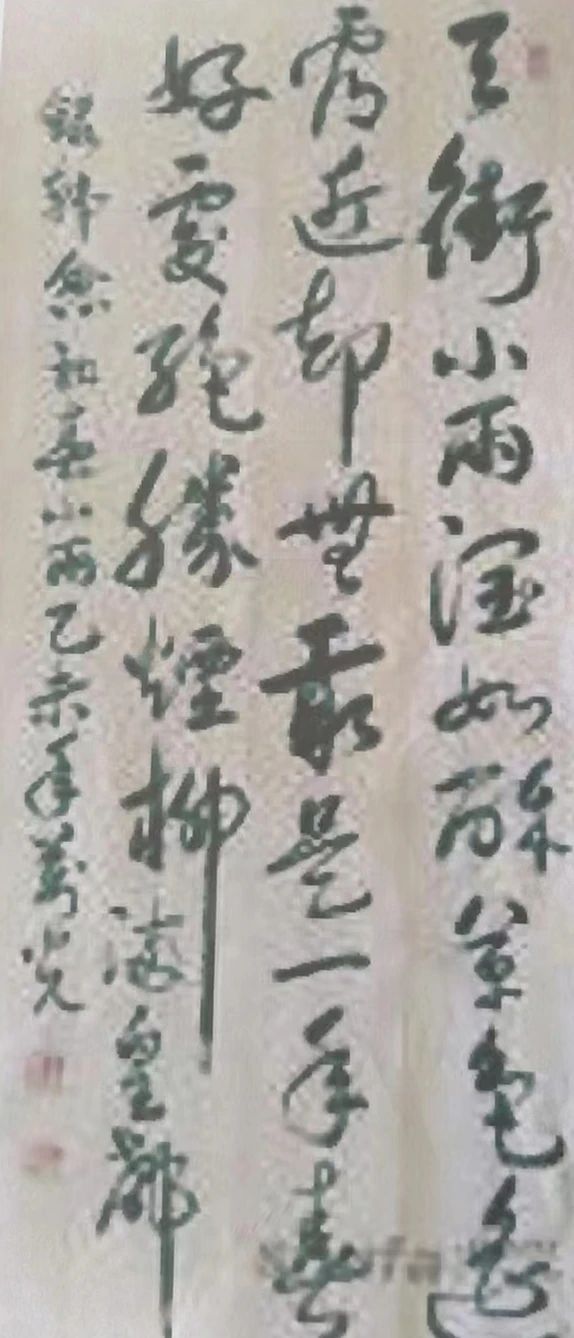 天街小雨潤如酥草色遙
看近却無最是一年春
好處絕勝煙柳滿皇都
錄韓愈初春小雨乙未年